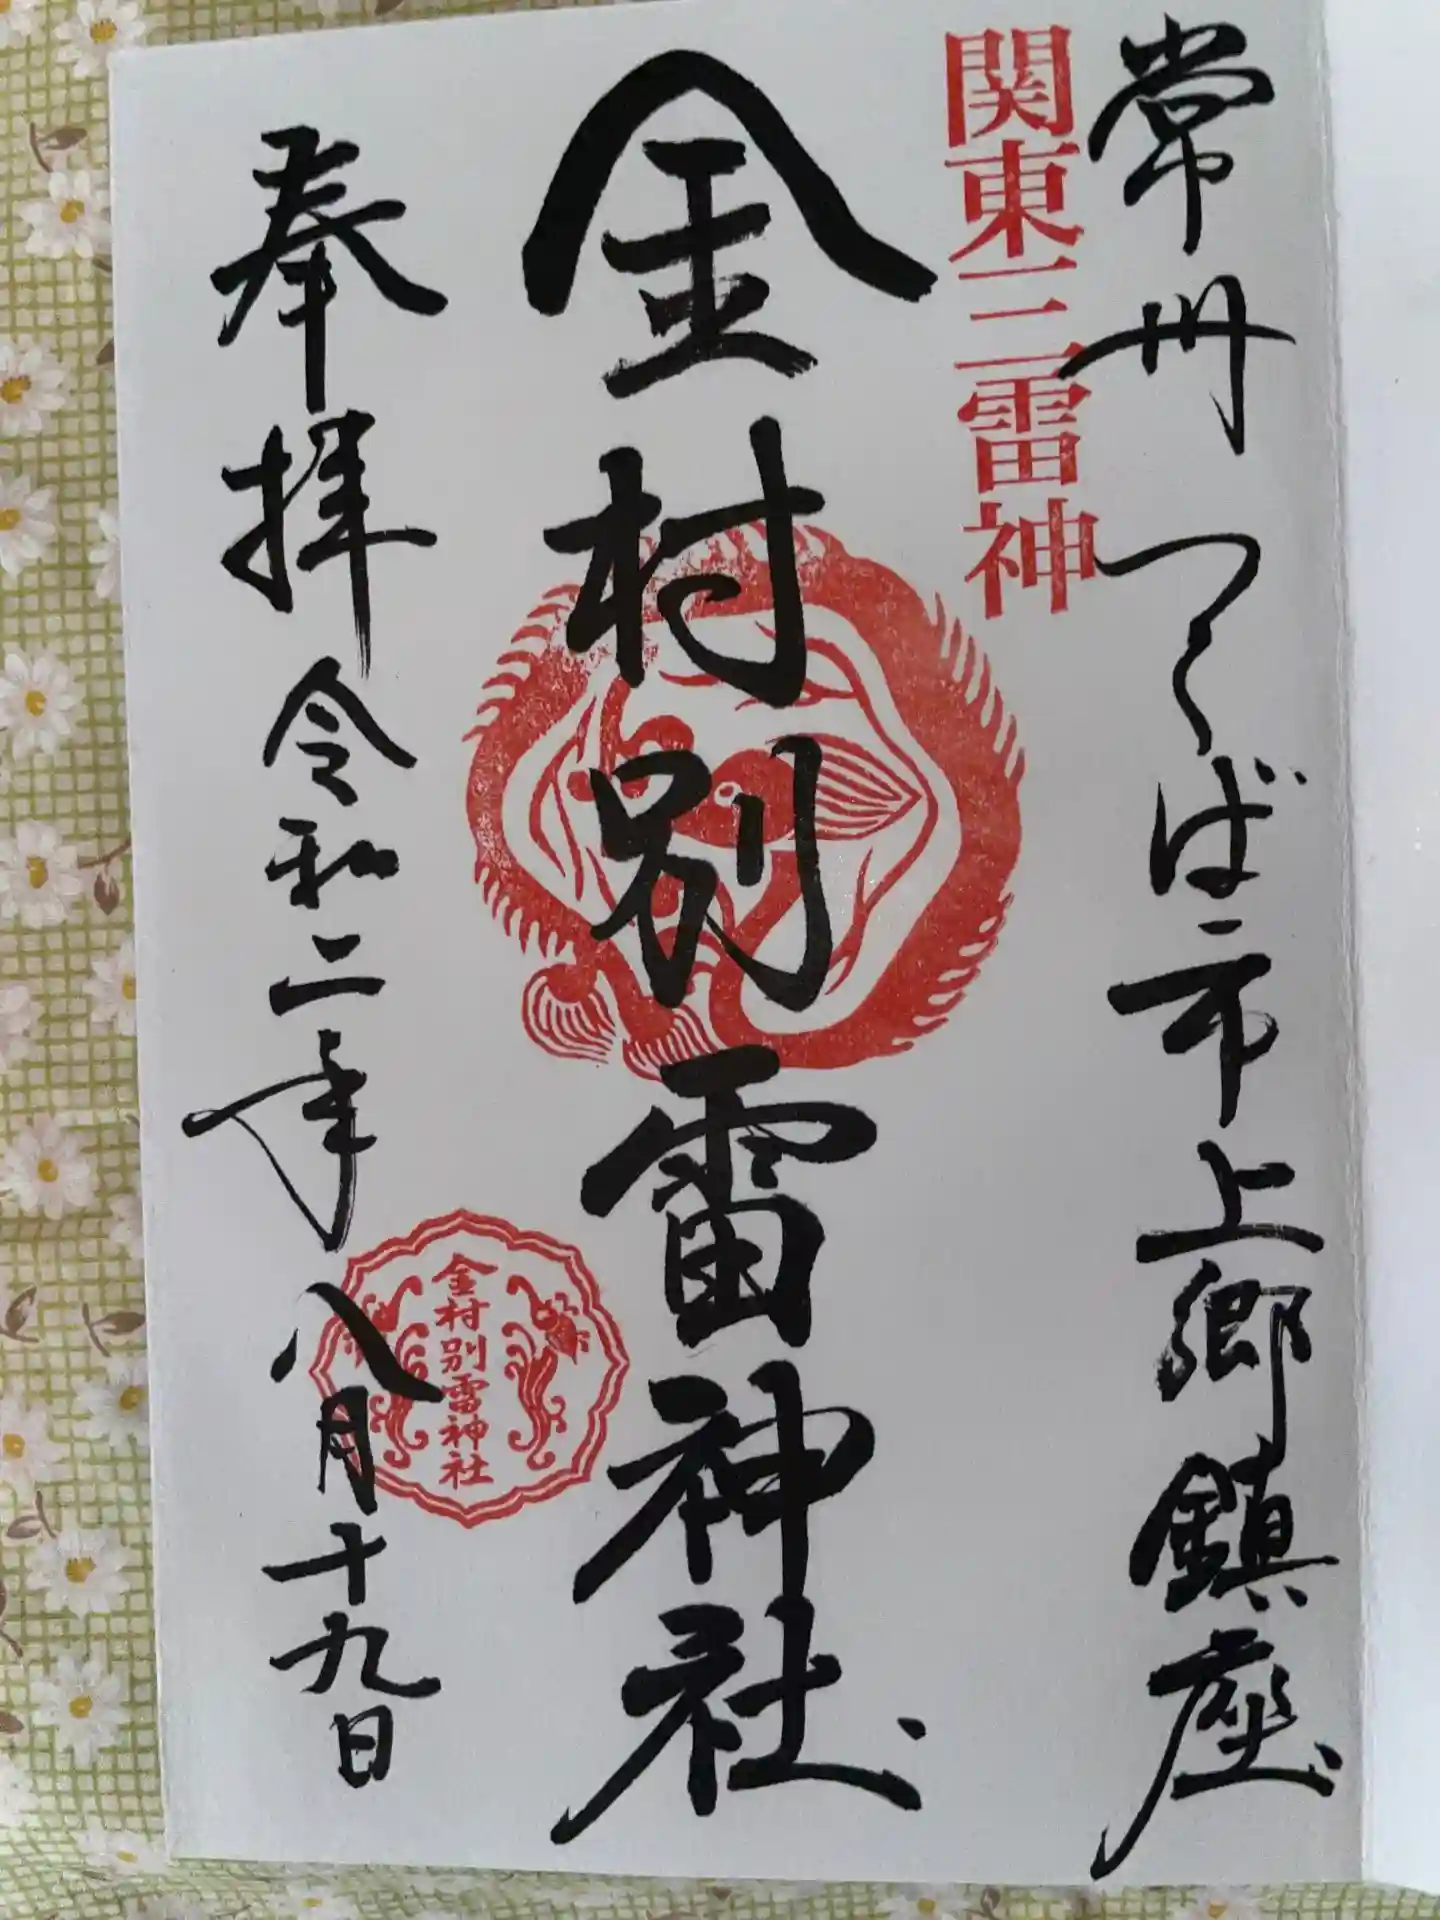 常州つくば市上郷鎮座
関東三雷神
金村別雷神社
奉拝令和二年八月十九日
金村別雷神社